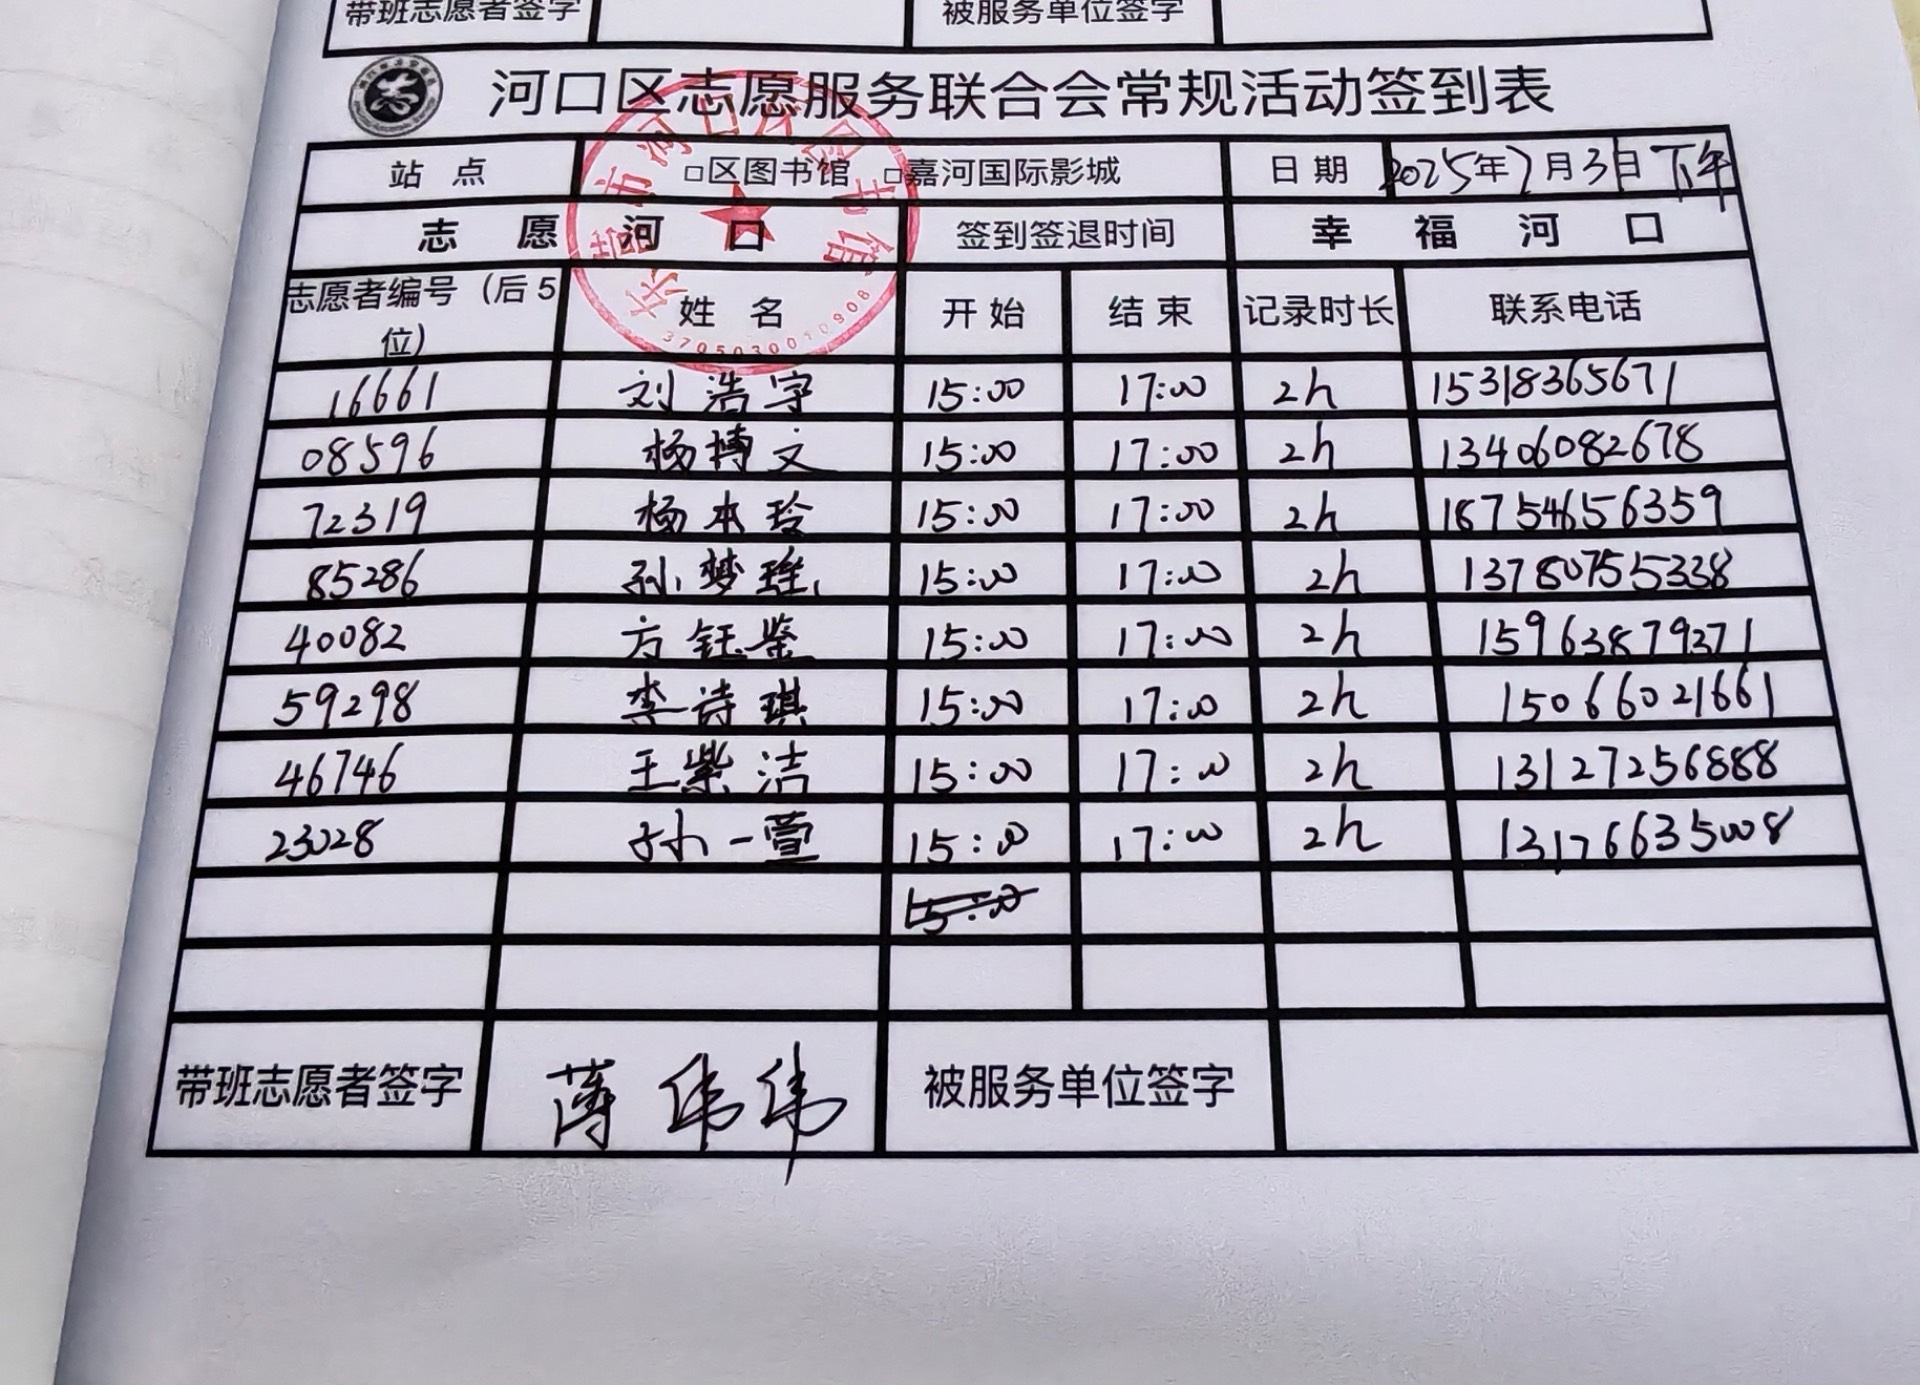 带班志愿者签字 被服务单位签字
河口区志愿服务联合会常规活动签到表
站 点 □区图书馆 □嘉河国际影城 日 期 2025年7月3日下午
志 愿 河 口 签到签退时间 幸 福 河 口
志愿者编号（后5位） 姓 名 开 始 结 束 记录时长 联系电话
3705030010908
16661 刘浩宇 15:00 17:00 2h 15318365671
08596 杨博文 15:00 17:00 2h 13406082678
72319 杨本玲 15:00 17:00 2h 18754656359
85286 孙梦 15:00 17:00 2h 13780755338
40082 方钰鉴 15:00 17:00 2h 15963879371
59298 李诗琪 15:00 17:00 2h 15066021661
46746 王紫洁 15:00 17:00 2h 13127256888
23028 孙一萱 15:00 17:00 2h 13176635008
15:00
带班志愿者签字 薄伟伟 被服务单位签字